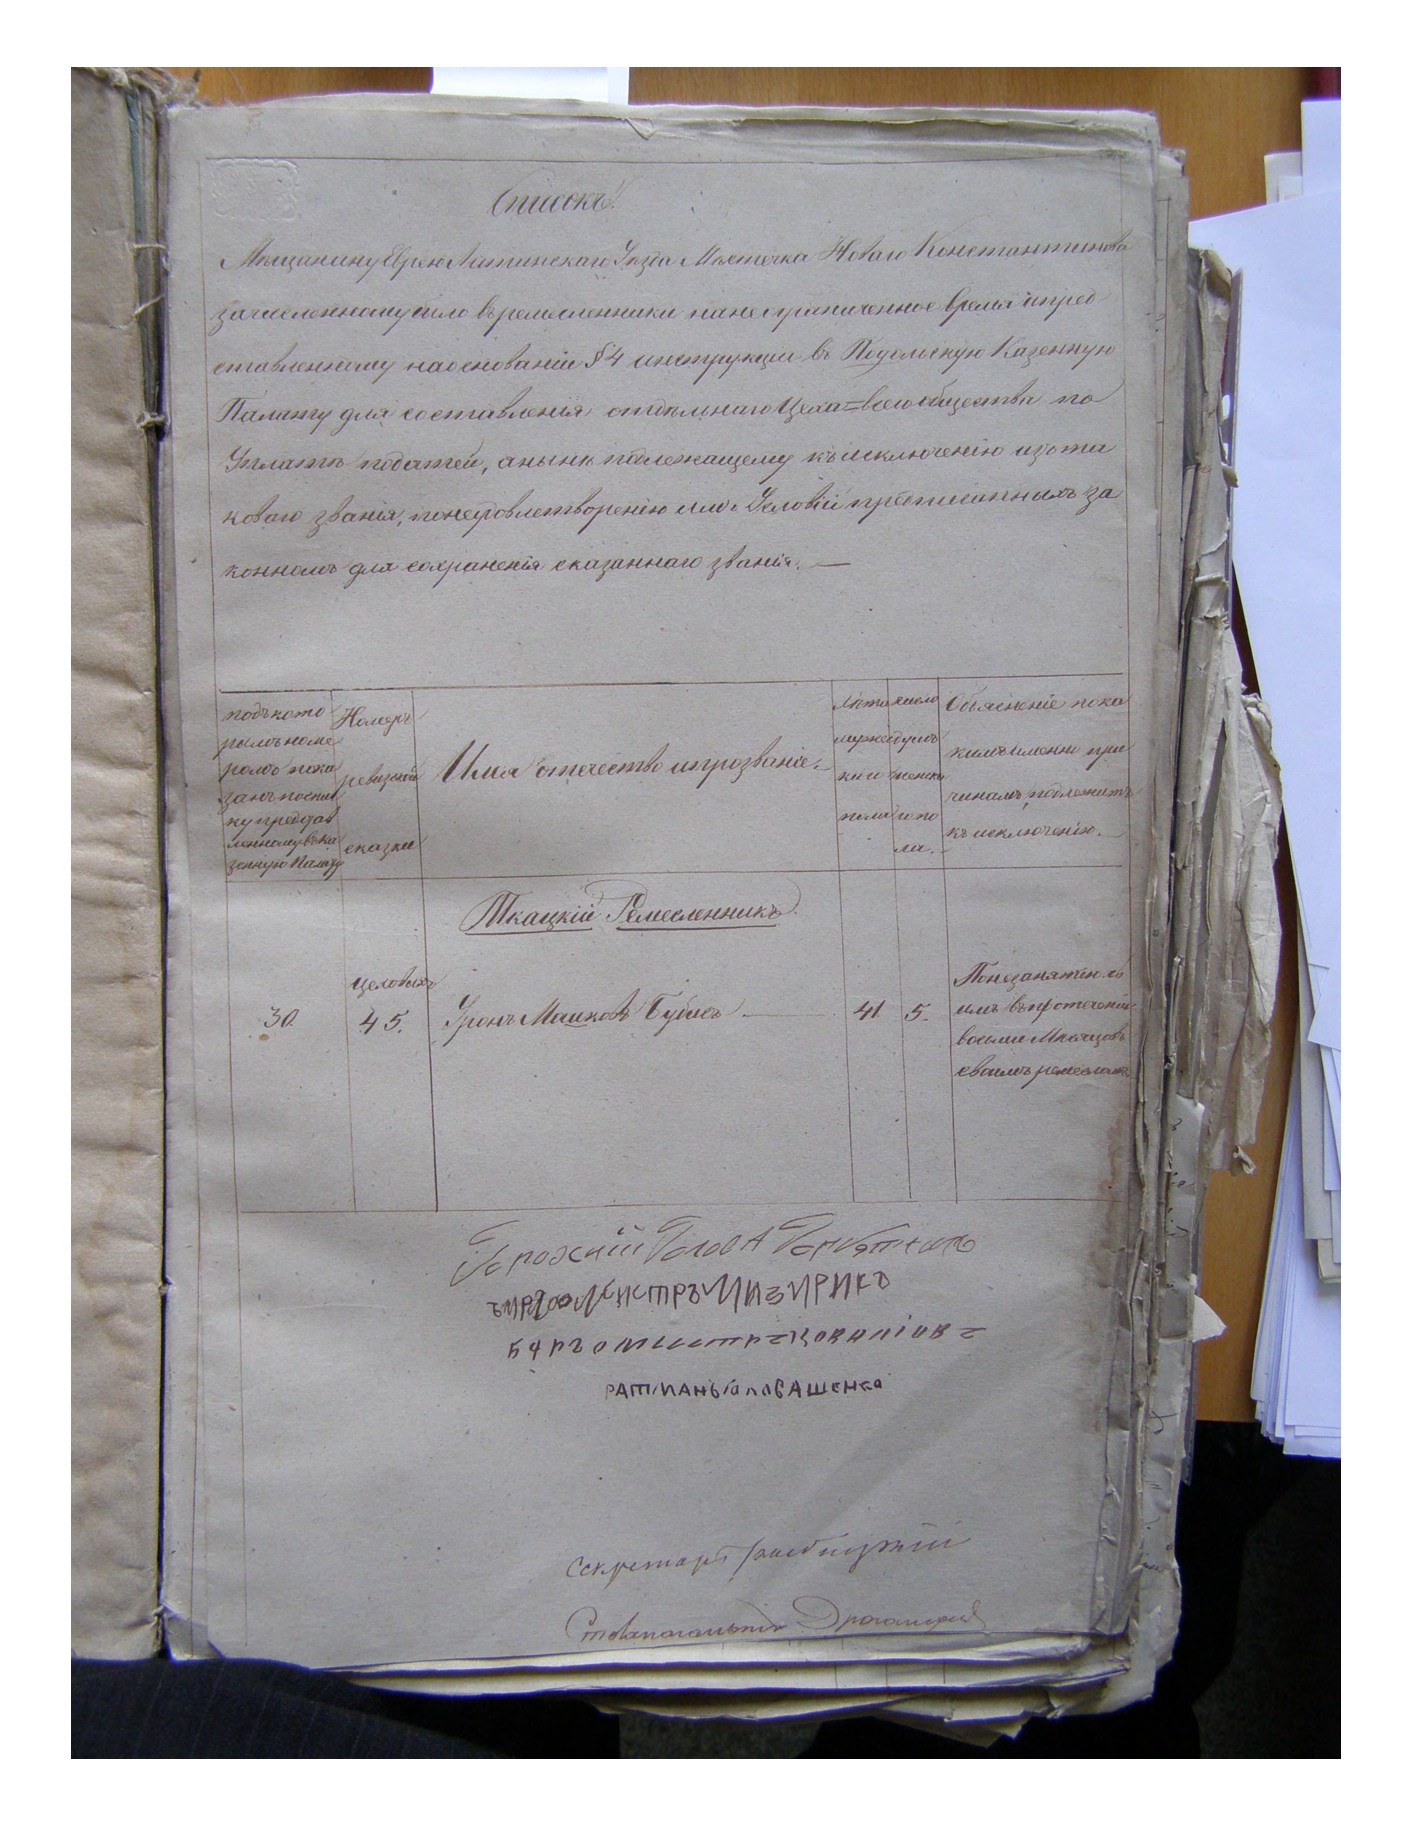 Списокъ
Мѣщанину Еврею Латинскаго Уѣзда Мѣстечка Новаго Константинова
зачисленному было въ ремесленники на неограниченное время и пред
ставленному на основаніи § 4 инструкціи въ Подольскую Казенную
Палату для составленія отдѣльнаго Цеха = всего общества по
Уплатѣ податей, а нынѣ подлежащему къ исключенію изъ та
коваго званія, по неудовлетворенію имъ Условій предписанныхъ за
кономъ для сохраненія сказаннаго званія. —
подъ кото
рымъ номе
ромъ пока
занъ по спи
ку представ
ленному въ Ка
зенную Палату
Номеръ
ревизской
сказки
Имя отечество и прозваніе. —
Лѣта
мужес
каго
пола
число
душъ
женска
го по
ла. —
Объясненіе по ка
кимъ именно при
чинамъ подлежитъ
къ исключенію. —
Ткацкій Ремесленникъ.
30.
45.
Сронъ Машковъ —
41
5.
По незанятію
имъ въ протеченіи
восьми Мѣсяцовъ
своимъ ремесломъ
Голова
Бургомистръ
РАТМАНЪ ГоловАШЕНКо
Секретарь
Столоначальникъ